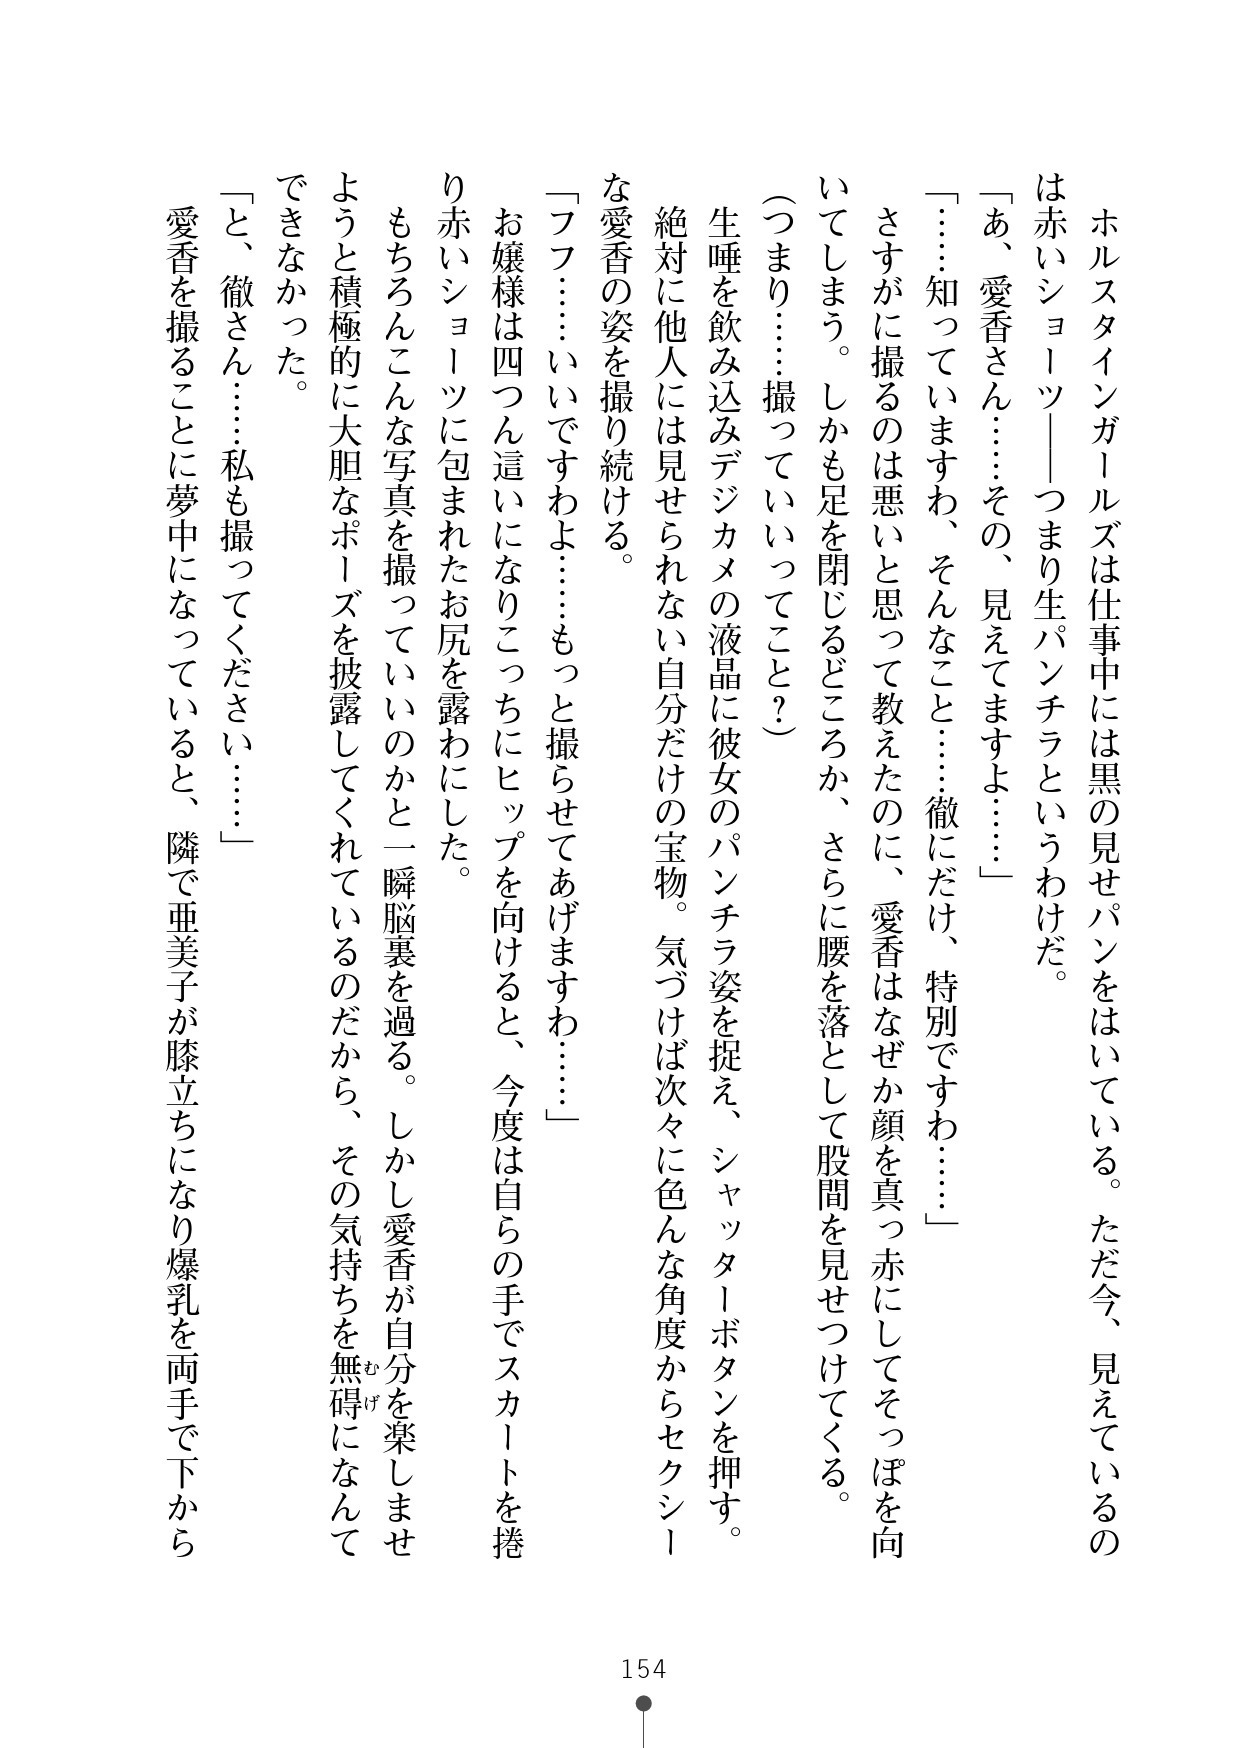 ホルスタインガールズは仕事中には黒の見せパンをはいている。ただ今、見えているの
は赤いショーツ――つまり生パンチラというわけだ。
「あ、愛香さん……その、見えてますよ……」
「……知っていますわ、そんなこと……徹にだけ、特別ですわ……」
さすがに撮るのは悪いと思って教えたのに、愛香はなぜか顔を真っ赤にしてそっぽを向
いてしまう。しかも足を閉じるどころか、さらに腰を落として股間を見せつけてくる。
（つまり……撮っていいってこと？）
生唾を飲み込みデジカメの液晶に彼女のパンチラ姿を捉え、シャッターボタンを押す。
絶対に他人には見せられない自分だけの宝物。気づけば次々に色んな角度からセクシー
な愛香の姿を撮り続ける。
「フフ……いいですわよ……もっと撮らせてあげますわ……」
お嬢様は四つん這いになりこっちにヒップを向けると、今度は自らの手でスカートを捲
り赤いショーツに包まれたお尻を露わにした。
もちろんこんな写真を撮っていいのかと一瞬脳裏を過る。しかし愛香が自分を楽しませ
ようと積極的に大胆なポーズを披露してくれているのだから、その気持ちを無碍になんて
むげ
できなかった。
「と、徹さん……私も撮ってください……」
愛香を撮ることに夢中になっていると、隣で亜美子が膝立ちになり爆乳を両手で下から
154